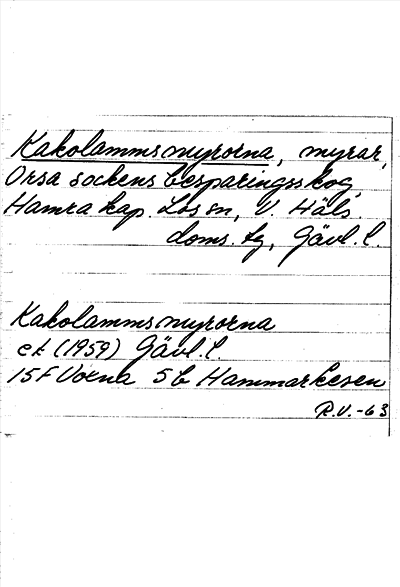 Kakolammsmyrorna, myrar,
Orsa sockens besparingsskog,
Hamra kap. Los sn, V. Häls.
doms. tg, Gävl. l.
Kakolammsmyrorna
ek (1959) Gävl. l.
15F Voxna 5b Hammarkesen
R.V.-63